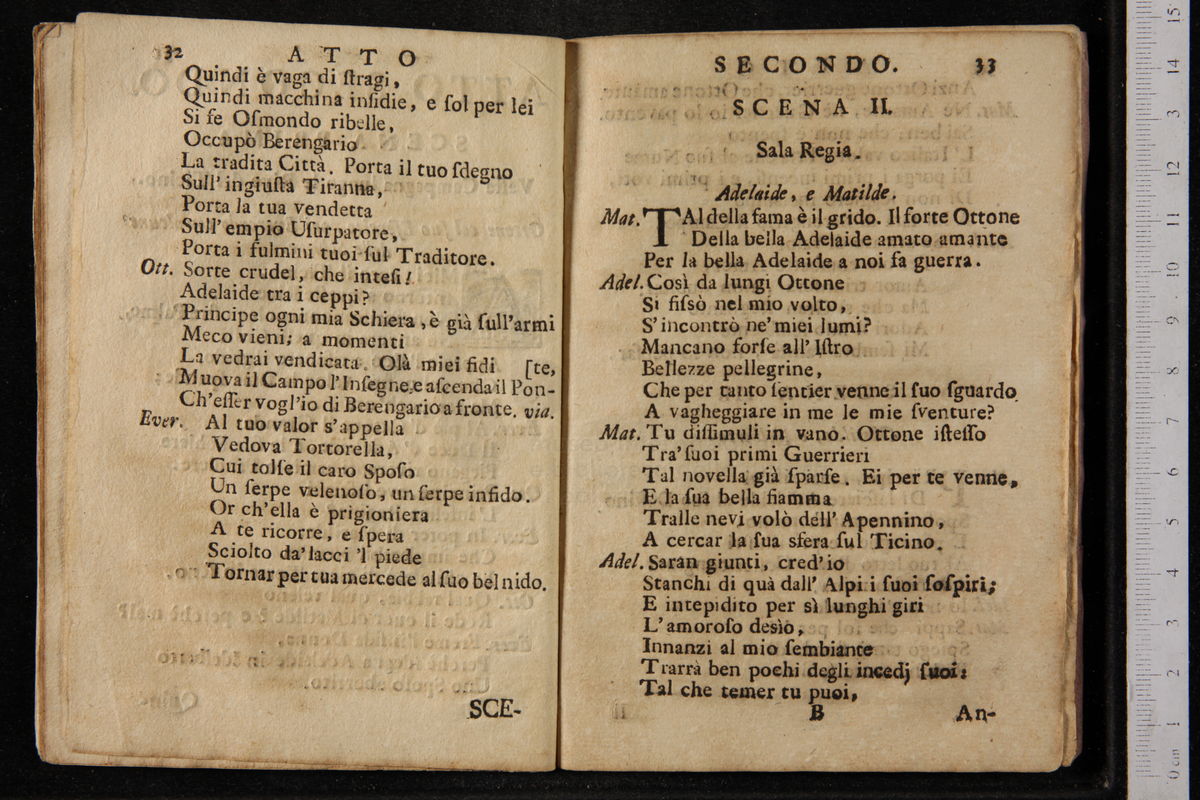 32 ATTO
Quindi è vaga di ſtragi,
Quindi macchina inſidie, e ſol per lei
Si fe Oſmondo ribelle,
Occupò Berengario
La tradita Città. Porta il tuo ſdegno
Sull' ingiuſta Tiranna,
Porta la tua vendetta
Sull' empio Uſurpatore,
Porta i fulmini tuoi ſul Traditore.
Ott. Sorte crudel, che inteſi!
Adelaide tra i ceppi?
Principe ogni mia Schiera, è già ſull'armi
Meco vieni; a momenti
La vedrai vendicata. Olà miei fidi [te,
Muova il Campo l'Inſegne, e aſcenda il Pon-
Ch'eſſer vogl'io di Berengario a fronte. via.
Ever. Al tuo valor s'appella
Vedova Tortorella,
Cui tolſe il caro Spoſo
Un ſerpe velenoſo, un ſerpe infido.
Or ch'ella è prigioniera
A te ricorre, e ſpera
Sciolto da'lacci 'l piede
Tornar per tua mercede al ſuo bel nido.
SCE-
SECONDO. 33
SCENA II.
Sala Regia.
Adelaide, e Matilde.
Mat. TAl della fama è il grido. Il forte Ottone
Della bella Adelaide amato amante
Per la bella Adelaide a noi fa guerra.
Adel. Così da lungi Ottone
Si fiſsò nel mio volto,
S'incontrò ne'miei lumi?
Mancano forſe all' Iſtro
Bellezze pellegrine,
Che per tanto ſentier venne il ſuo ſguardo
A vagheggiare in me le mie ſventure?
Mat. Tu diſſimuli in vano. Ottone iſteſſo
Tra' ſuoi primi Guerrieri
Tal novella già ſparſe. Ei per te venne,
E la ſua bella fiamma
Tralle nevi volò dell' Apennino,
A cercar la ſua sfera ſul Ticino.
Adel. Saran giunti, cred'io
Stanchi di quà dall' Alpi i ſuoi ſoſpiri;
E intepidito per sì lunghi giri
L'amoroſo desìo,
Innanzi al mio ſembiante
Trarrà ben pochi degli incedj ſuoi:
Tal che temer tu puoi,
B An-